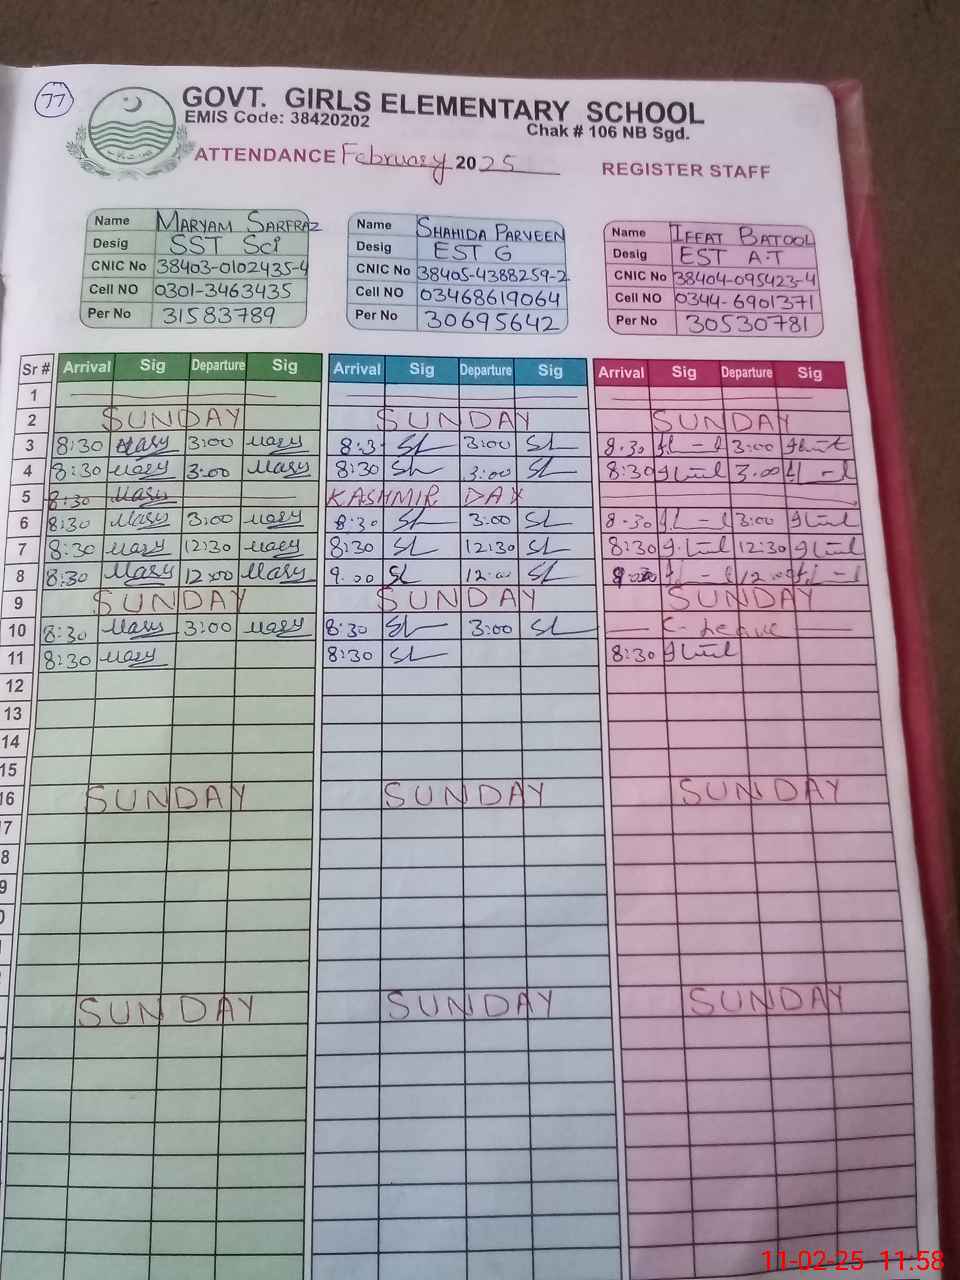 77
GOVT. GIRLS ELEMENTARY SCHOOL
EMIS Code: 38420202
Chak # 106 NB Sgd.
ATTENDANCE February 2025 REGISTER STAFF
Name MARYAM SARFRAZ
Desig SST Sci
CNIC No 38403-0102435-4
Cell NO 0301-3463435
Per No 31583789
Name SHAHIDA PARVEEN
Desig EST G
CNIC No 38405-4388259-2
Cell NO 03468619064
Per No 30695642
Name IFFAT BATOOL
Desig EST A.T
CNIC No 38404-095423-4
Cell NO 0344-6901371
Per No 30530781
Sr # Arrival Sig Departure Sig Arrival Sig Departure Sig Arrival Sig Departure Sig
1
2 SUNDAY SUNDAY SUNDAY
3 8:30 Mary 3:00 Mary 8:3 SL 3:00 SL 8.30 3:00
4 8:30 Mary 3:00 Mary 8:30 SL 3:00 SL 8:30 3.00
5 8:30 Mary KASHMIR DAY
6 8:30 Mary 3:00 Mary 8:30 SL 3:00 SL 8.30 3:00
7 8:30 Mary 12:30 Mary 8:30 SL 12:30 SL 8:30 12:30
8 8:30 Mary 12:00 Mary 9.00 SL 12:00 SL
9 SUNDAY SUNDAY SUNDAY
10 8:30 Mary 3:00 Mary 8:30 SL 3:00 SL C-Leave
11 8:30 Mary 8:30 SL 8:30
12
13
14
15
16 SUNDAY SUNDAY SUNDAY
7
8
9
SUNDAY SUNDAY SUNDAY
11-02-25 11:58